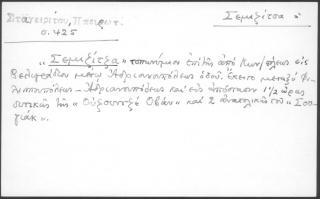 Σταγειρίτου, Ηπειρωτ.
σ. 425
Σεμεξίτσα
"Σεμεξίτζα" τοπωνύμιον ἐπὶ τῆς ἀπὸ Κων/πόλεως εἰς
Βελιγράδιον μέσῳ Ἀδριανουπόλεως ὁδοῦ. Ἔκειτο μεταξὺ Φι-
λιππουπόλεως - Ἀδριανουπόλεως καὶ εἰς ἀπόστασιν 1 1/2 ὥρας
δυτικῶς τῆς "Οὐζουντζὲ Ὀβάν" καὶ 2 ἀνατολικῶς τοῦ